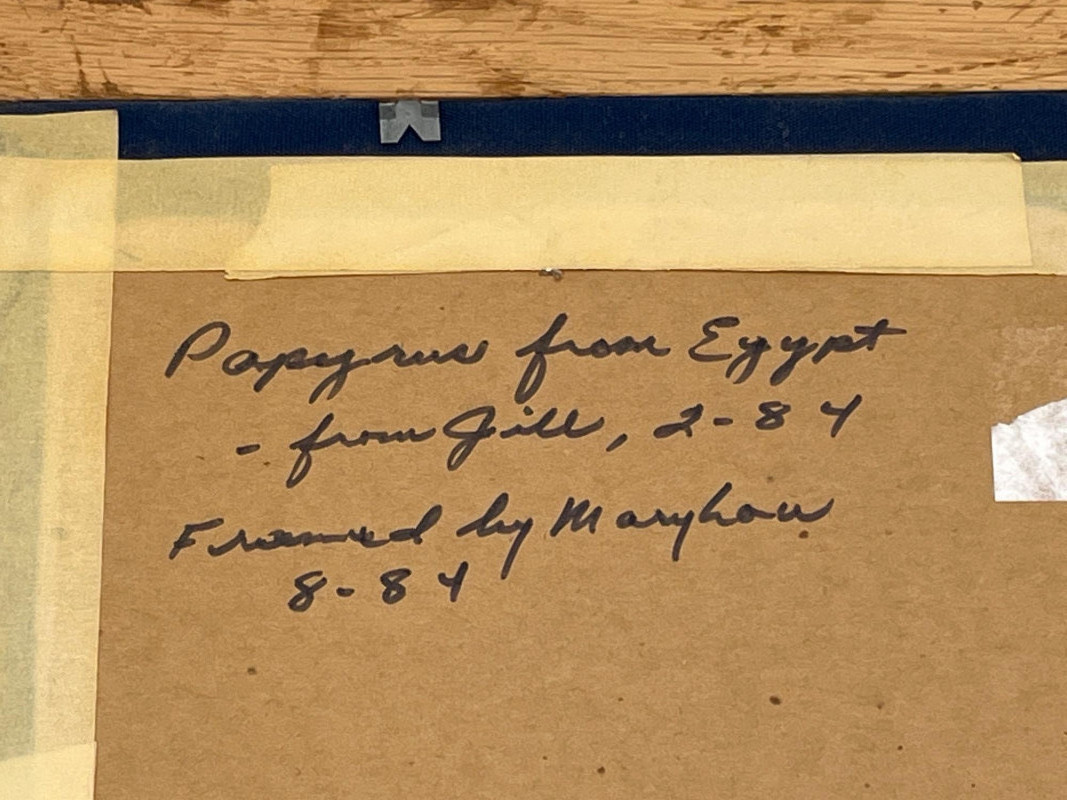 Papyrus from Egypt
- from Jill, 2-84
Framed by Marylou
8-84